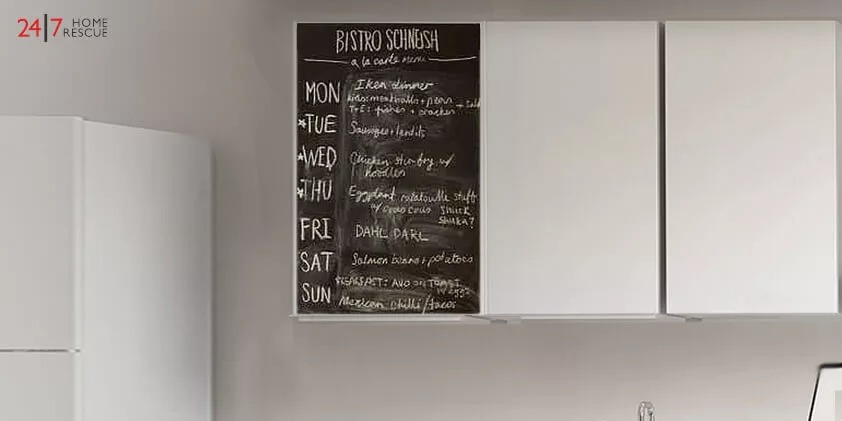 24|7 HOME RESCUE
BISTRO SCHNEISH
a la carte menu
MON Ikea dinner
kids: meatballs + peas
T+E: fishes + cracker + Sald
*TUE Sausages + lentils
*WED Chicken stir-fry w/
noodles
*THU Eggplant ratatouille stuff
w/ cous cous Shuck
Shuka?
FRI DAHL DARL
SAT Salmon beans + potatoes
SUN BREAKFAST: AVO ON TOAST
W EGGS
Mexican chilli / tacos